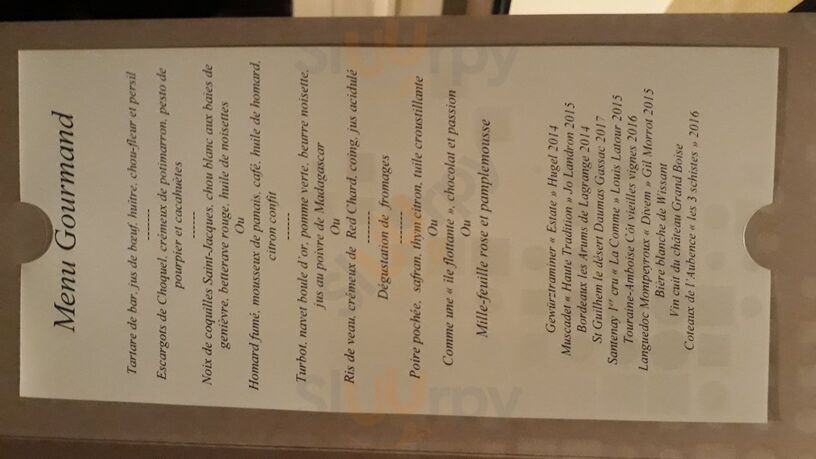 Menu Gourmand
Tartare de bar, jus de bœuf, huître, chou-fleur et persil
-------
Escargots de Choquel, crémeux de potimarron, pesto de
pourpier et cacahuètes
-------
Noix de coquilles Saint-Jacques, chou blanc aux baies de
genièvre, betterave rouge, huile de noisettes
Ou
Homard fumé, mousseux de panais, café, huile de homard,
citron confit
-------
Turbot, navet boule d'or, pomme verte, beurre noisette,
jus au poivre de Madagascar
Ou
Ris de veau, crémeux de Red Chard, coing, jus acidulé
-------
Dégustation de fromages
-------
Poire pochée, safran, thym citron, tuile croustillante
Ou
Comme une « ile flottante », chocolat et passion
Ou
Mille-feuille rose et pamplemousse
Gewürztraminer « Estate » Hugel 2014
Muscadet « Haute Tradition » Jo Landron 2015
Bordeaux les Arums de Lagrange 2014
St Guilhem le désert Daumas Gassac 2017
Santenay 1er cru « La Comme » Louis Latour 2015
Touraine-Amboise Côt vieilles vignes 2016
Languedoc Mompeyroux « Divem » Gil Morrot 2015
Bière blanche de Wissant
Vin cuit du château Grand Boise
Coteaux de l'Aubence « les 3 schistes » 2016
Sluurpy
Sluurpy
Sluurpy
Sluurpy